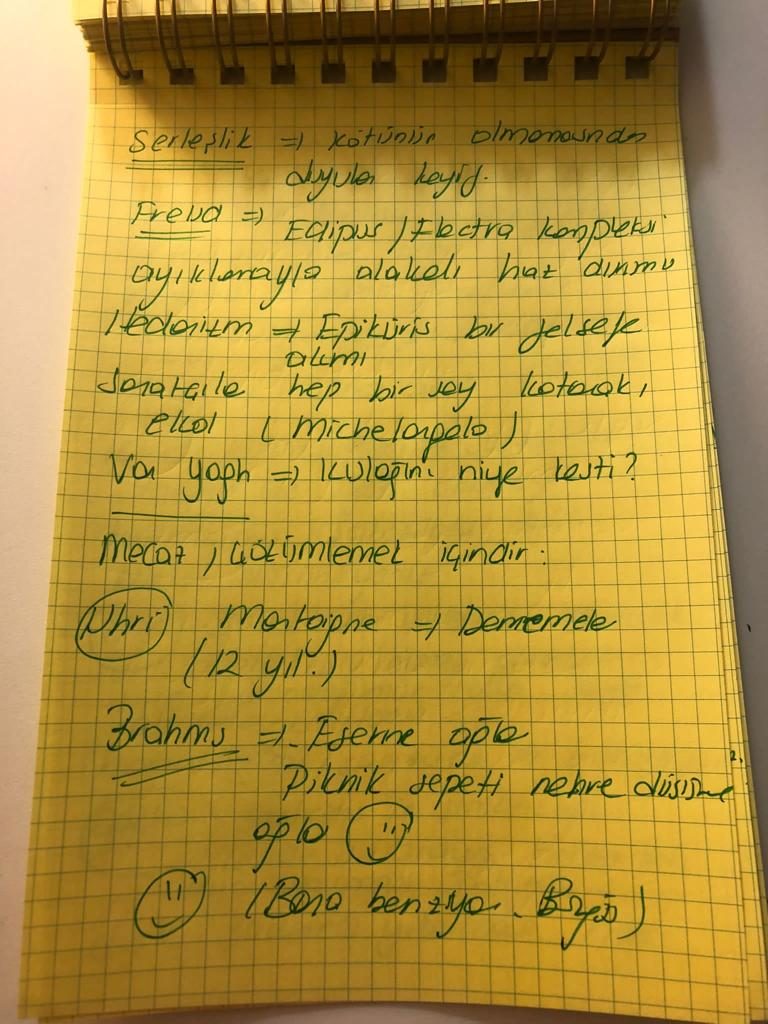 Serleşlik => kötünün olmamasından
duyulan keyif.
Freud =>
Edipus / Electra kompleksi
ayıklamayla alakalı haz
Hedonizm => Epiküris bir felsefe
akımı
Sanatçıla hep bir şey katarak,
ekol (Michelangelo)
Van => Kulağını niye kesti?
Mecaz, çözümlemek içindir:
Montaigne => Denemele
(12 yıl.)
Brahms => Eserine ağla
Piknik sepeti nehre düşüşüne
ağla
(Bana benziyor.